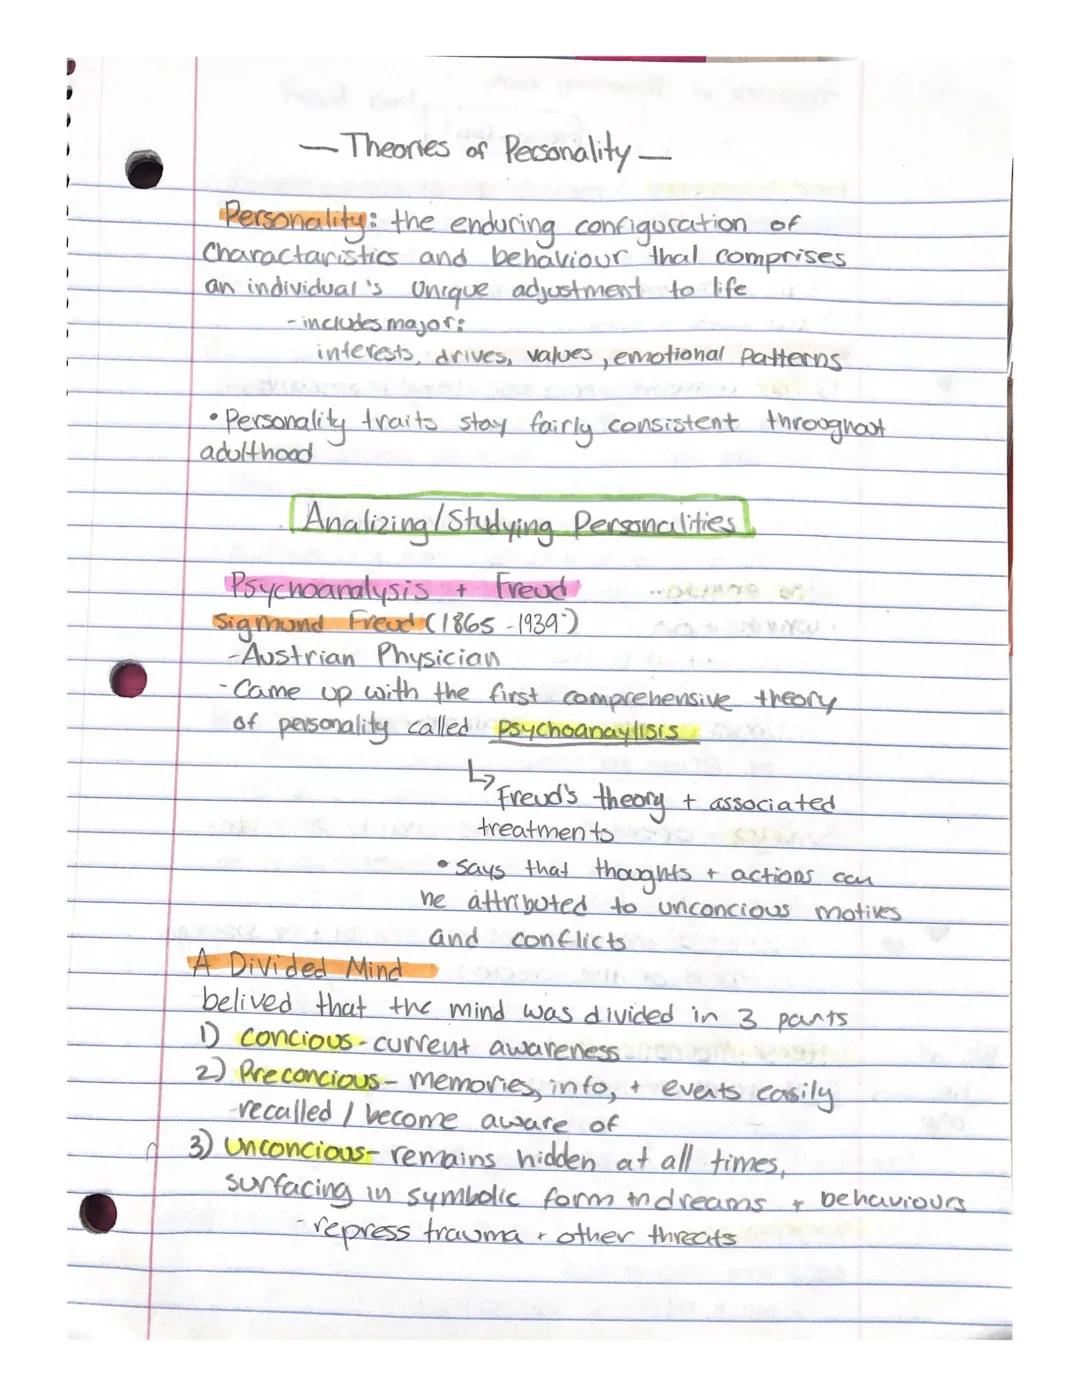 — Theories of Personality —
Personality: the enduring configuration of
Charactaristics and behaviour that comprises
an individual's unique adjustment to life
- includes major:
interests, drives, values, emotional Patterns
• Personality traits stay fairly consistent throughout
adulthood
Analizing/Studying Personalities
Psychoanalysis + Freud
Sigmund Freud (1865-1939)
- Austrian Physician
- Came up with the first comprehensive theory
of personality called psychoanaylisis
↳ Freud's theory + associated
treatments
• says that thoughts + actions can
be attributed to unconcious motives
and conflicts
A Divided Mind
belived that the mind was divided in 3 parts
1) concious - current awareness
2) Preconcious - memories, info, + events easily
recalled / become aware of
3) unconcious - remains hidden at all times,
surfacing in symbolic form in dreams + behaviours
- repress trauma + other threats